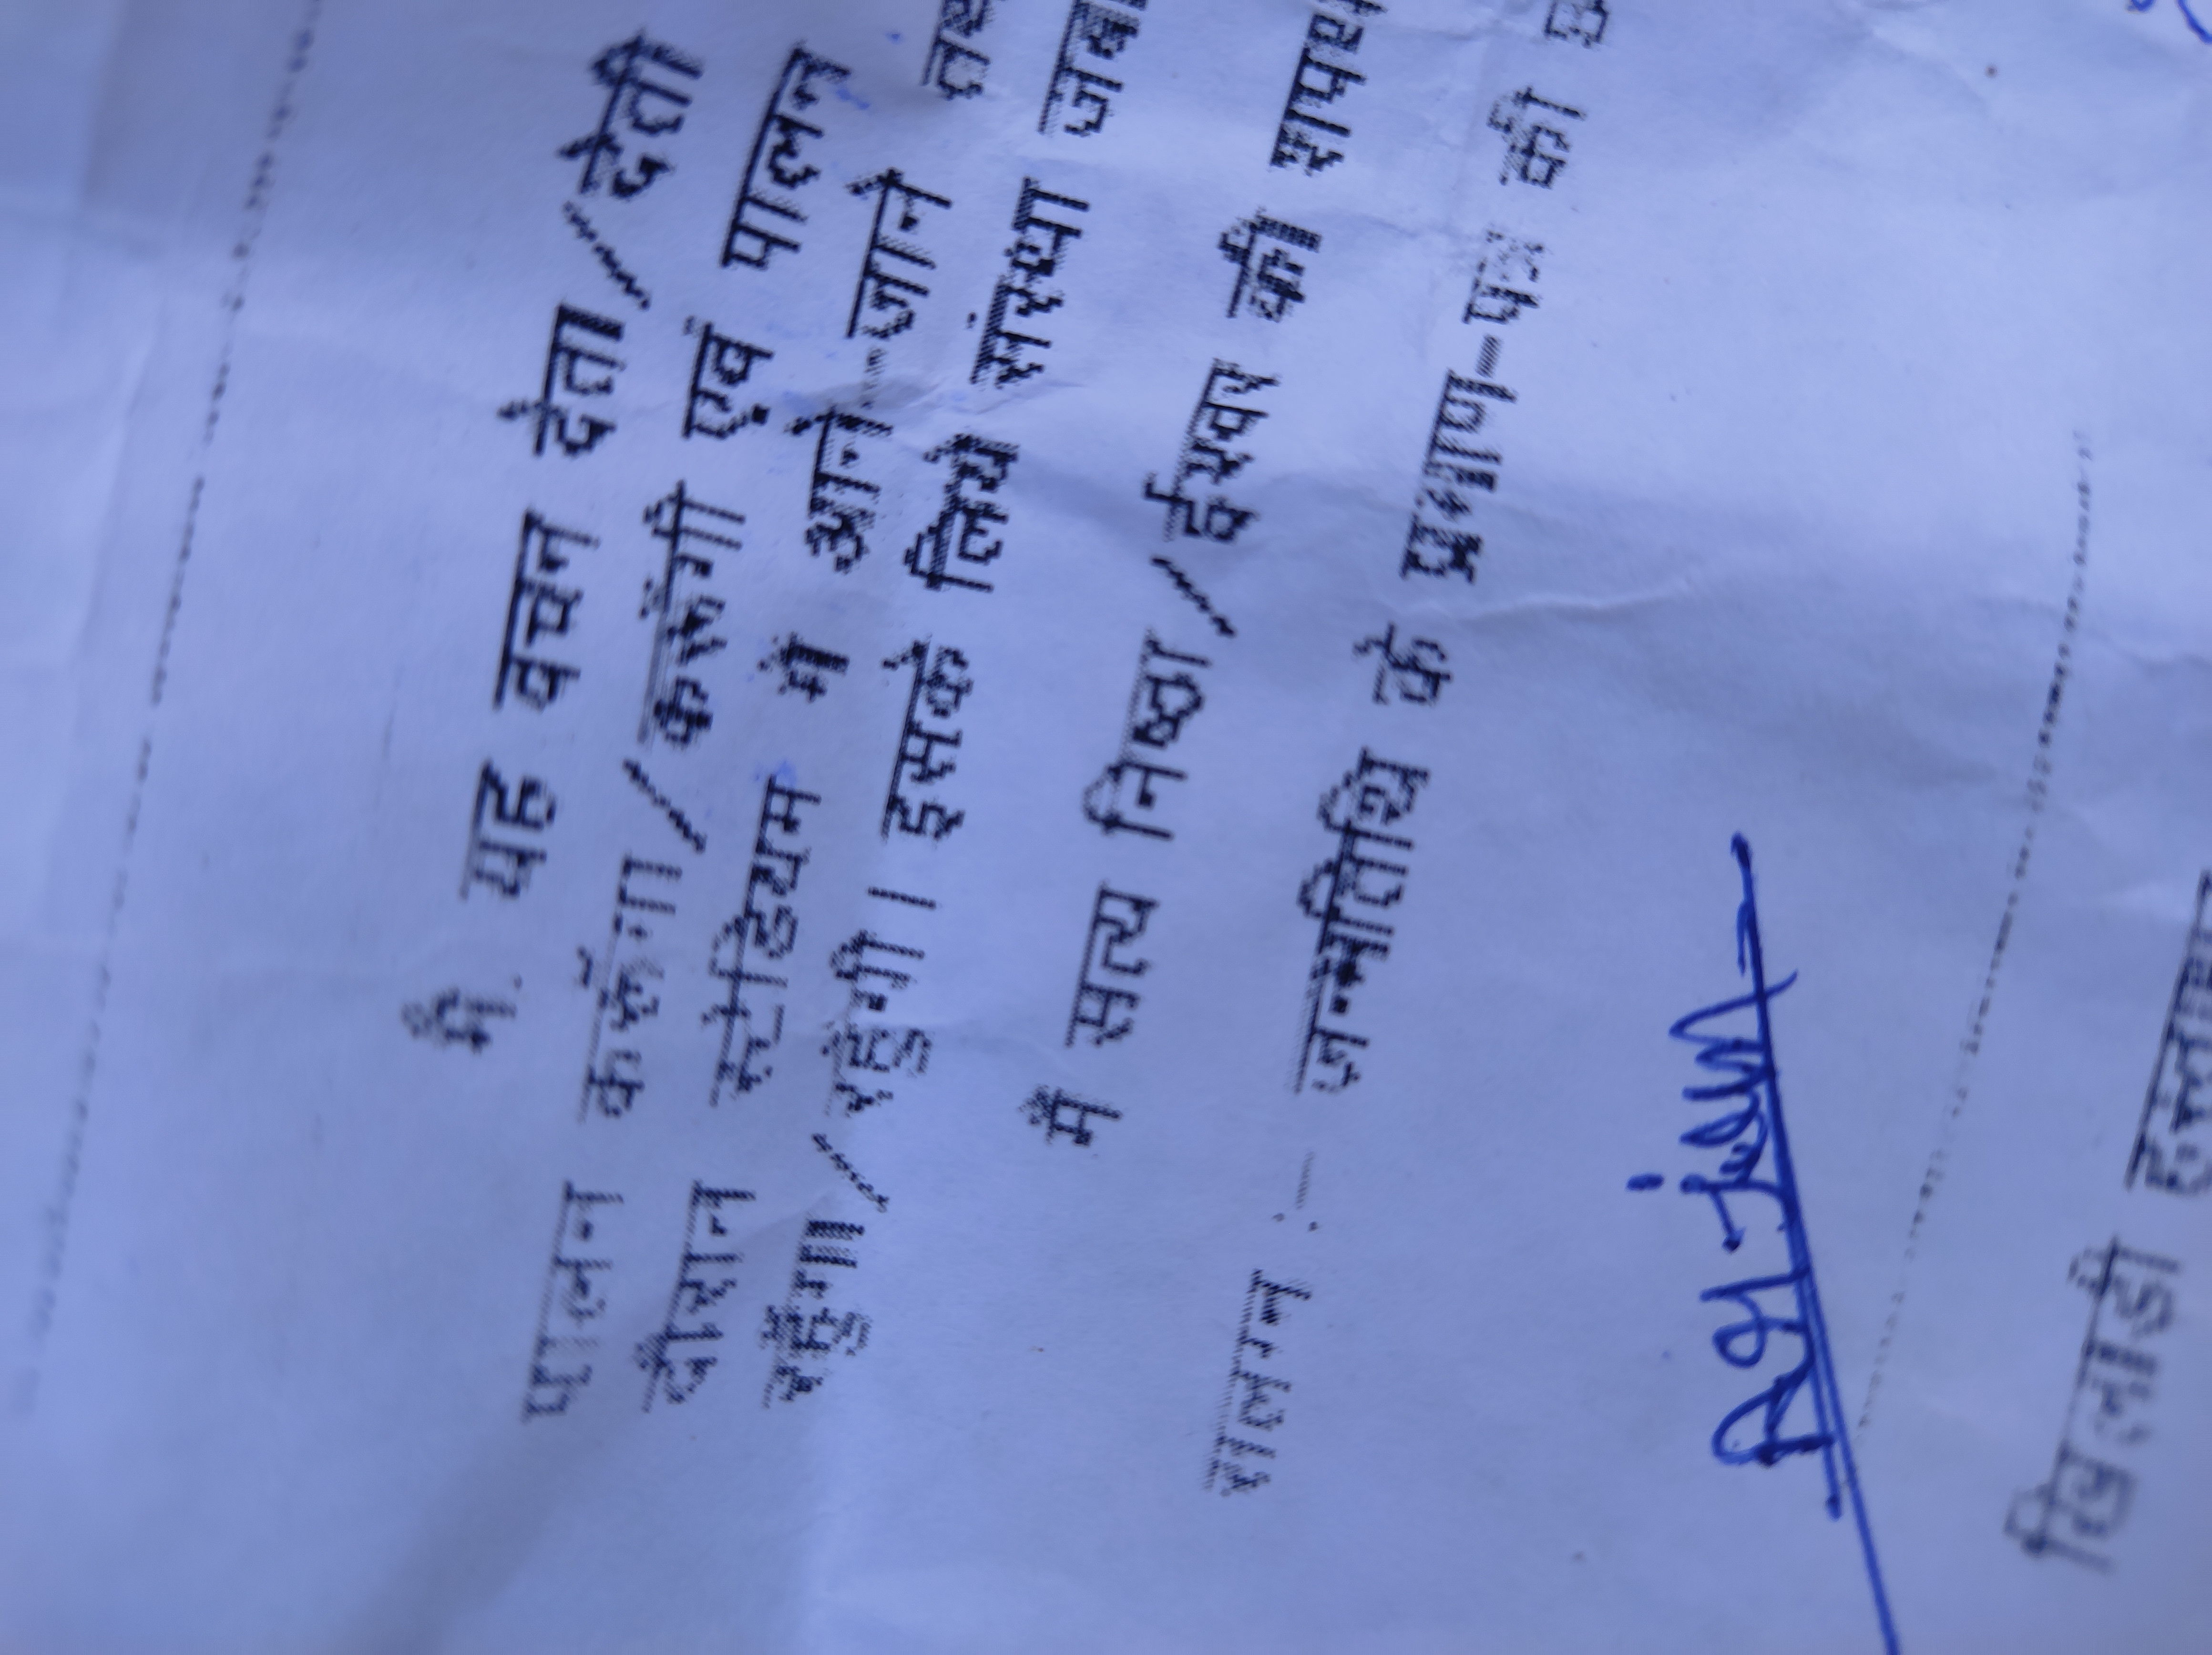 मैं यह वचन देता/देती
पालन करूँगा/करूँगी एवं पालन
दौरान स्टेडियम में आने-जाने
रहूँगा/रहूँगी। इसके लिये संस्था
मैं सत्य निष्ठा/ईश्वर की शपथ
संलग्न :- जन्मतिथि के प्रमाण-पत्र की
खिलाड़ी